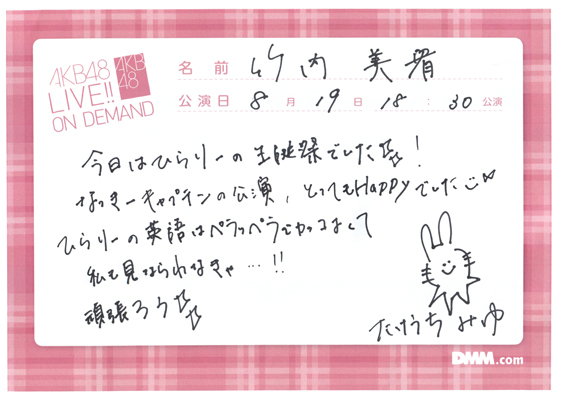 AKB48
LIVE!!
ON DEMAND
AKB
48
名前 竹内 美宥
公演日 8 月 19 日 18 : 30 公演
今日はひらりーの生誕祭でした!
なっきーキャプテンの公演、とってもHappyでした
ひらりーの英語はペラッペラでカッコよくて
私も見ならわなきゃ…!!
頑張ろう
たけうち みゆ
DMM.com